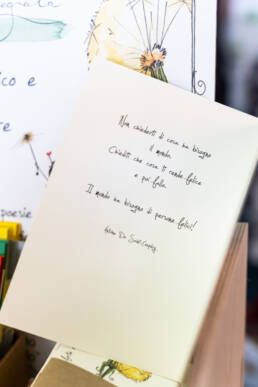 ico e
re
poesie
Non chiederti di cosa ha bisogno
il mondo.
Chiediti che cosa ti rende felice
e poi fallo.
Il mondo ha bisogno di persone felici!